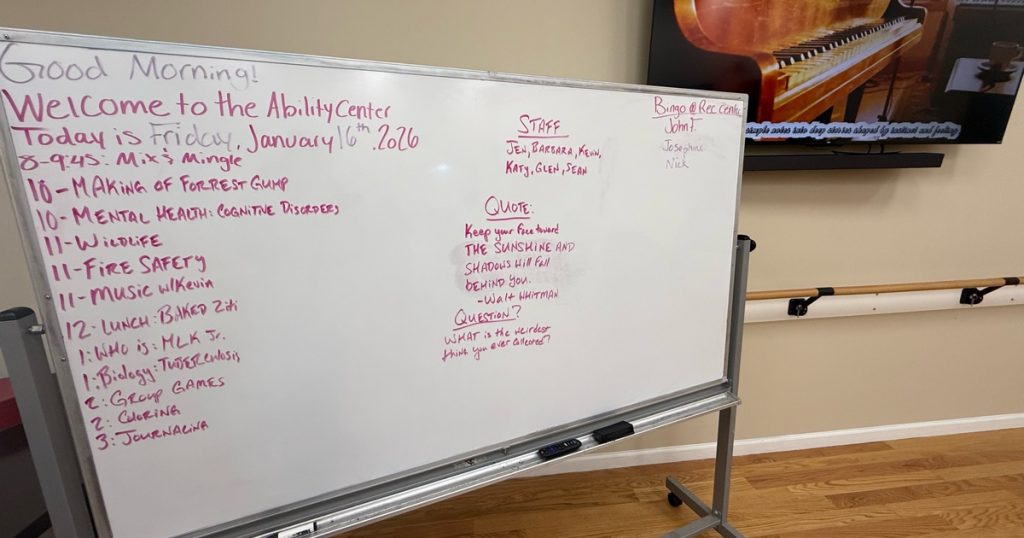 Good Morning!
Welcome to the Ability Center
Today is Friday, January 16th, 2026
8-9:45: Mix & Mingle
10-Making of Forrest Gump
10-Mental Health: Cognitive Disorders
11-Wildlife
11-Fire Safety
11-Music w/Kevin
12: Lunch: Baked Ziti
1: Who is: MLK Jr.
1: Biology: Tuberculosis
2: Group Games
2: Choring
3: Journaling
Staff
Jen, Barbara, Kevin,
Katy, Glen, Sean
Quote:
Keep your face toward
the sunshine and
shadows will fall
behind you.
-Walt Whitman
Question?
What is the weirdest
think you ever collected?
Bingo @ Rec Center
John F.
Josephine
Nick
simple notes into deep stories shaped by and feeling